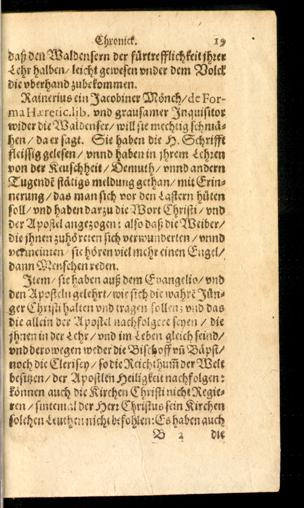 Chronick. 19
daß den Waldensern der fürtrefflichkeit jhrer
Lehr halben / leicht gewesen vnder dem Volck
die vberhand zubekommen.
Rainerius ein Jacobiner Mönch / de For-
ma Hæretic. lib. vnd grausamer Inquisitor
wider die Waldenser / will sie mechtig schmä-
hen / da er sagt. Sie haben die H. Schrifft
fleissig gelesen / vnnd haben in jhrem Lehren
von der Keuschheit / Demuth / vnnd andern
Tugendē stätigs meldung gethan / mit Erin-
nerung / das man sich vor den Lastern hüten
soll / vnd haben darzu die Wort Christi / vnd
der Apostel angezogen: also daß die Weiber /
die jhnen zuhöreten sich verwunderten / vnnd
vermeinten / sie hören viel mehr einen Engel /
dann Menschen reden.
Item / sie haben auß dem Evangelio / vnd
den Aposteln gelehrt / wie sich die wahrē Jün-
ger Christi halten vnd tragen sollen: vnd das
die allein der Apostel nachfolgere seyen / die
jhnen in der Lehr / vnd im Leben gleich seind /
vnd derowegen weder die Bischoff vn̄ Bäpst /
noch die Clerisey / so die Reichthum̄ der Welt
besitzen / der Apostlen Heiligkeit nachfolgen:
können auch die Kirchen Christi nicht Regie-
ren / sintemal der Herr Christus sein Kirchen
solchen Leuthen nicht befohlen: Es haben auch
B 2 die